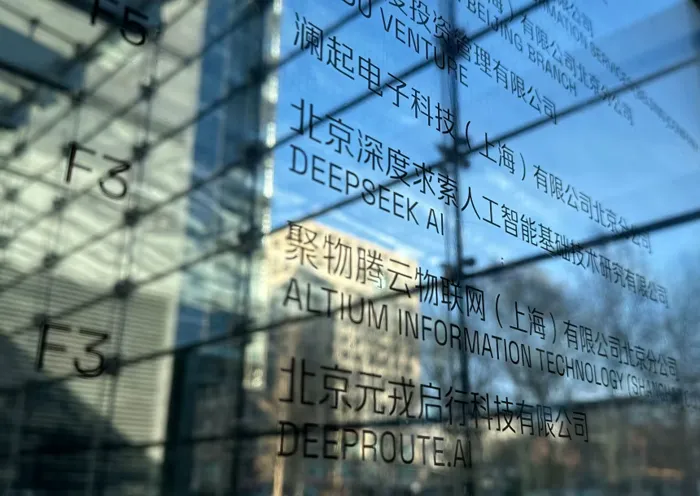 F5
投资管理有限公司
VENTURE
BEIJING BRANCH
澜起电子科技（上海）有限公司北京分公司
F3
北京深度求索人工智能基础技术研究有限公司
DEEPSEEK AI
聚物腾云物联网（上海）有限公司北京分公司
ALTIUM INFORMATION TECHNOLOGY
F3
北京元戎启行科技有限公司
DEEPROUTE.AI